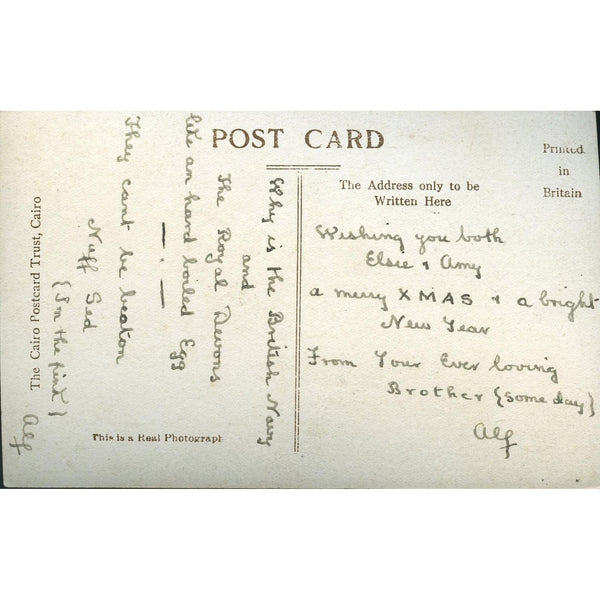 POST CARD
Printed
in
Britain
The Address only to be
Written Here
Why is the British Navy
and
The Royal Devons
like an hard boiled Egg
They cant be beaton
Nuff Sed
Alf
Wishing you both
Elsie & Amy
a merry XMAS & a bright
New Year
From Your Ever loving
Brother {some day}
Alf
This is a Real Photograph
The Cairo Postcard Trust, Cairo